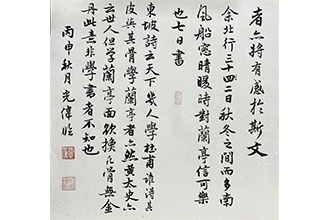 者亦將有感於斯文
余北行三十二日秋冬之間而多南
風船窗晴暖時對蘭亭信可樂
也七日書
東坡詩云天下幾人學杜甫誰得其
皮與其骨學蘭亭者亦然黃太史亦
云世人但學蘭亭面欲換凡骨無金
丹此意非學書者不知也
丙申秋月光偉臨